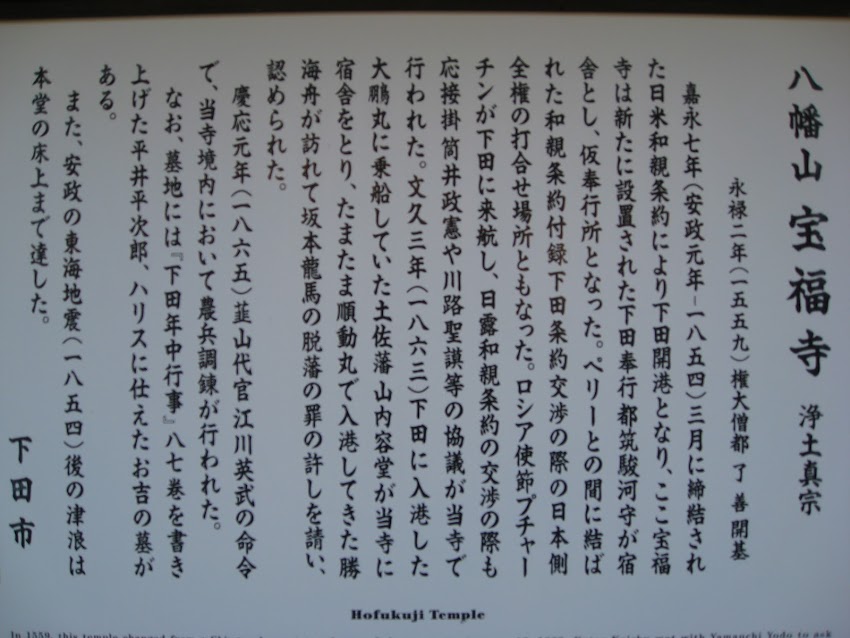 八幡山 宝福寺 浄土真宗
永禄二年(一五五九)権大僧都 了善開基
嘉永七年(安政元年-一八五四)三月に締結され
た日米和親条約により下田開港となり、ここ宝福
寺は新たに設置された下田奉行都筑駿河守が宿
舎とし、仮奉行所となった。ペリーとの間に結ば
れた和親条約付録下田条約交渉の際の日本側
全権の打合せ場所ともなった。ロシア使節プチャー
チンが下田に来航し、日露和親条約の交渉の際も
応接掛筒井政憲や川路聖謨等の協議が当寺で
行われた。文久三年(一八六三)下田に入港した
大鵬丸に乗船していた土佐藩山内容堂が当寺に
宿舎をとり、たまたま順動丸で入港してきた勝
海舟が訪れて坂本龍馬の脱藩の罪の許しを請い、
認められた。
慶応元年(一八六五)韮山代官江川英武の命令
で、当寺境内において農兵調錬が行われた。
なお、墓地には『下田年中行事』八七巻を書き
上げた平井平次郎、ハリスに仕えたお吉の墓が
ある。
また、安政の東海地震(一八五四)後の津浪は
本堂の床上まで達した。
下田市
Hofukuji Temple